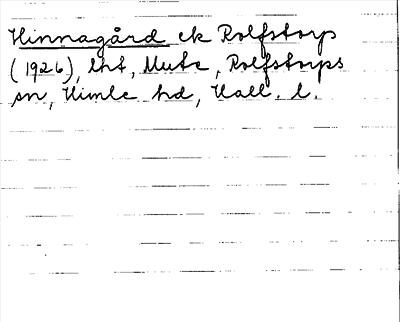 Hinnagård ek Rolfstorp
(1926), lht, Mute, Rolfstorps
sn, Himle hd, Hall. l.